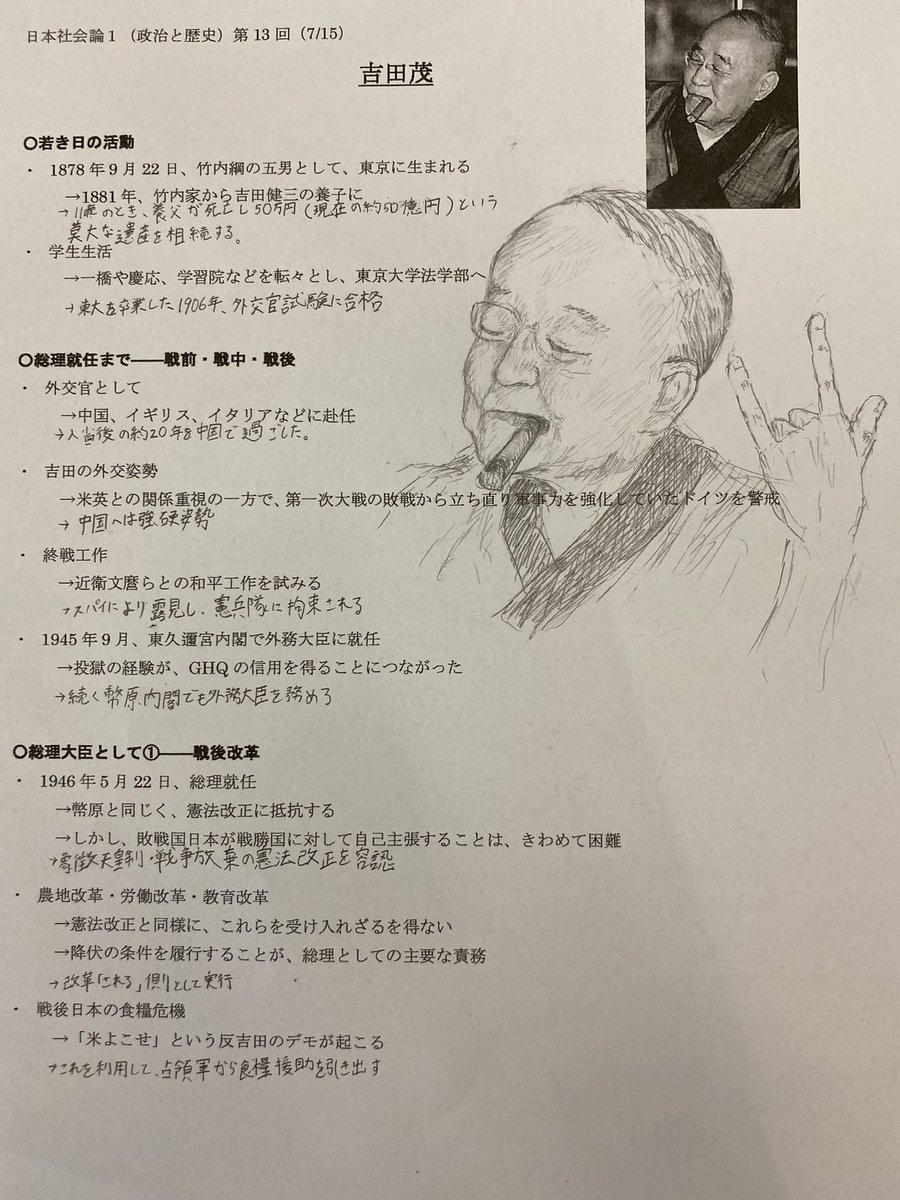 日本社会論1（政治と歴史）第13回（7/15）
吉田茂
〇若き日の活動
・ 1878年9月22日、竹内綱の五男として、東京に生まれる
→1881年、竹内家から吉田健三の養子に
→11歳のとき、養父が死亡し50万円(現在の約50億円)という
莫大な遺産を相続する。
・ 学生生活
→一橋や慶応、学習院などを転々とし、東京大学法学部へ
→東大を卒業した1906年、外交官試験に合格
〇総理就任まで――戦前・戦中・戦後
・ 外交官として
→中国、イギリス、イタリアなどに赴任
→入省後の約20年を中国で過ごした。
・ 吉田の外交姿勢
→米英との関係重視の一方で、第一次大戦の敗戦から立ち直り軍事力を強化していたドイツを警戒
→中国へは強硬姿勢
・ 終戦工作
→近衛文麿らとの和平工作を試みる
→スパイにより露見し、憲兵隊に拘束される
・ 1945年9月、東久邇宮内閣で外務大臣に就任
→投獄の経験が、GHQの信用を得ることにつながった
→続く幣原内閣でも外務大臣を務める
〇総理大臣として①――戦後改革
・ 1946年5月22日、総理就任
→幣原と同じく、憲法改正に抵抗する
→しかし、敗戦国日本が戦勝国に対して自己主張することは、きわめて困難
→象徴天皇制・戦争放棄の憲法改正を容認
・ 農地改革・労働改革・教育改革
→憲法改正と同様に、これらを受け入れざるを得ない
→降伏の条件を履行することが、総理としての主要な責務
→改革「される」側として実行
・ 戦後日本の食糧危機
→「米よこせ」という反吉田のデモが起こる
→これを利用して、占領軍から食糧援助を引き出す